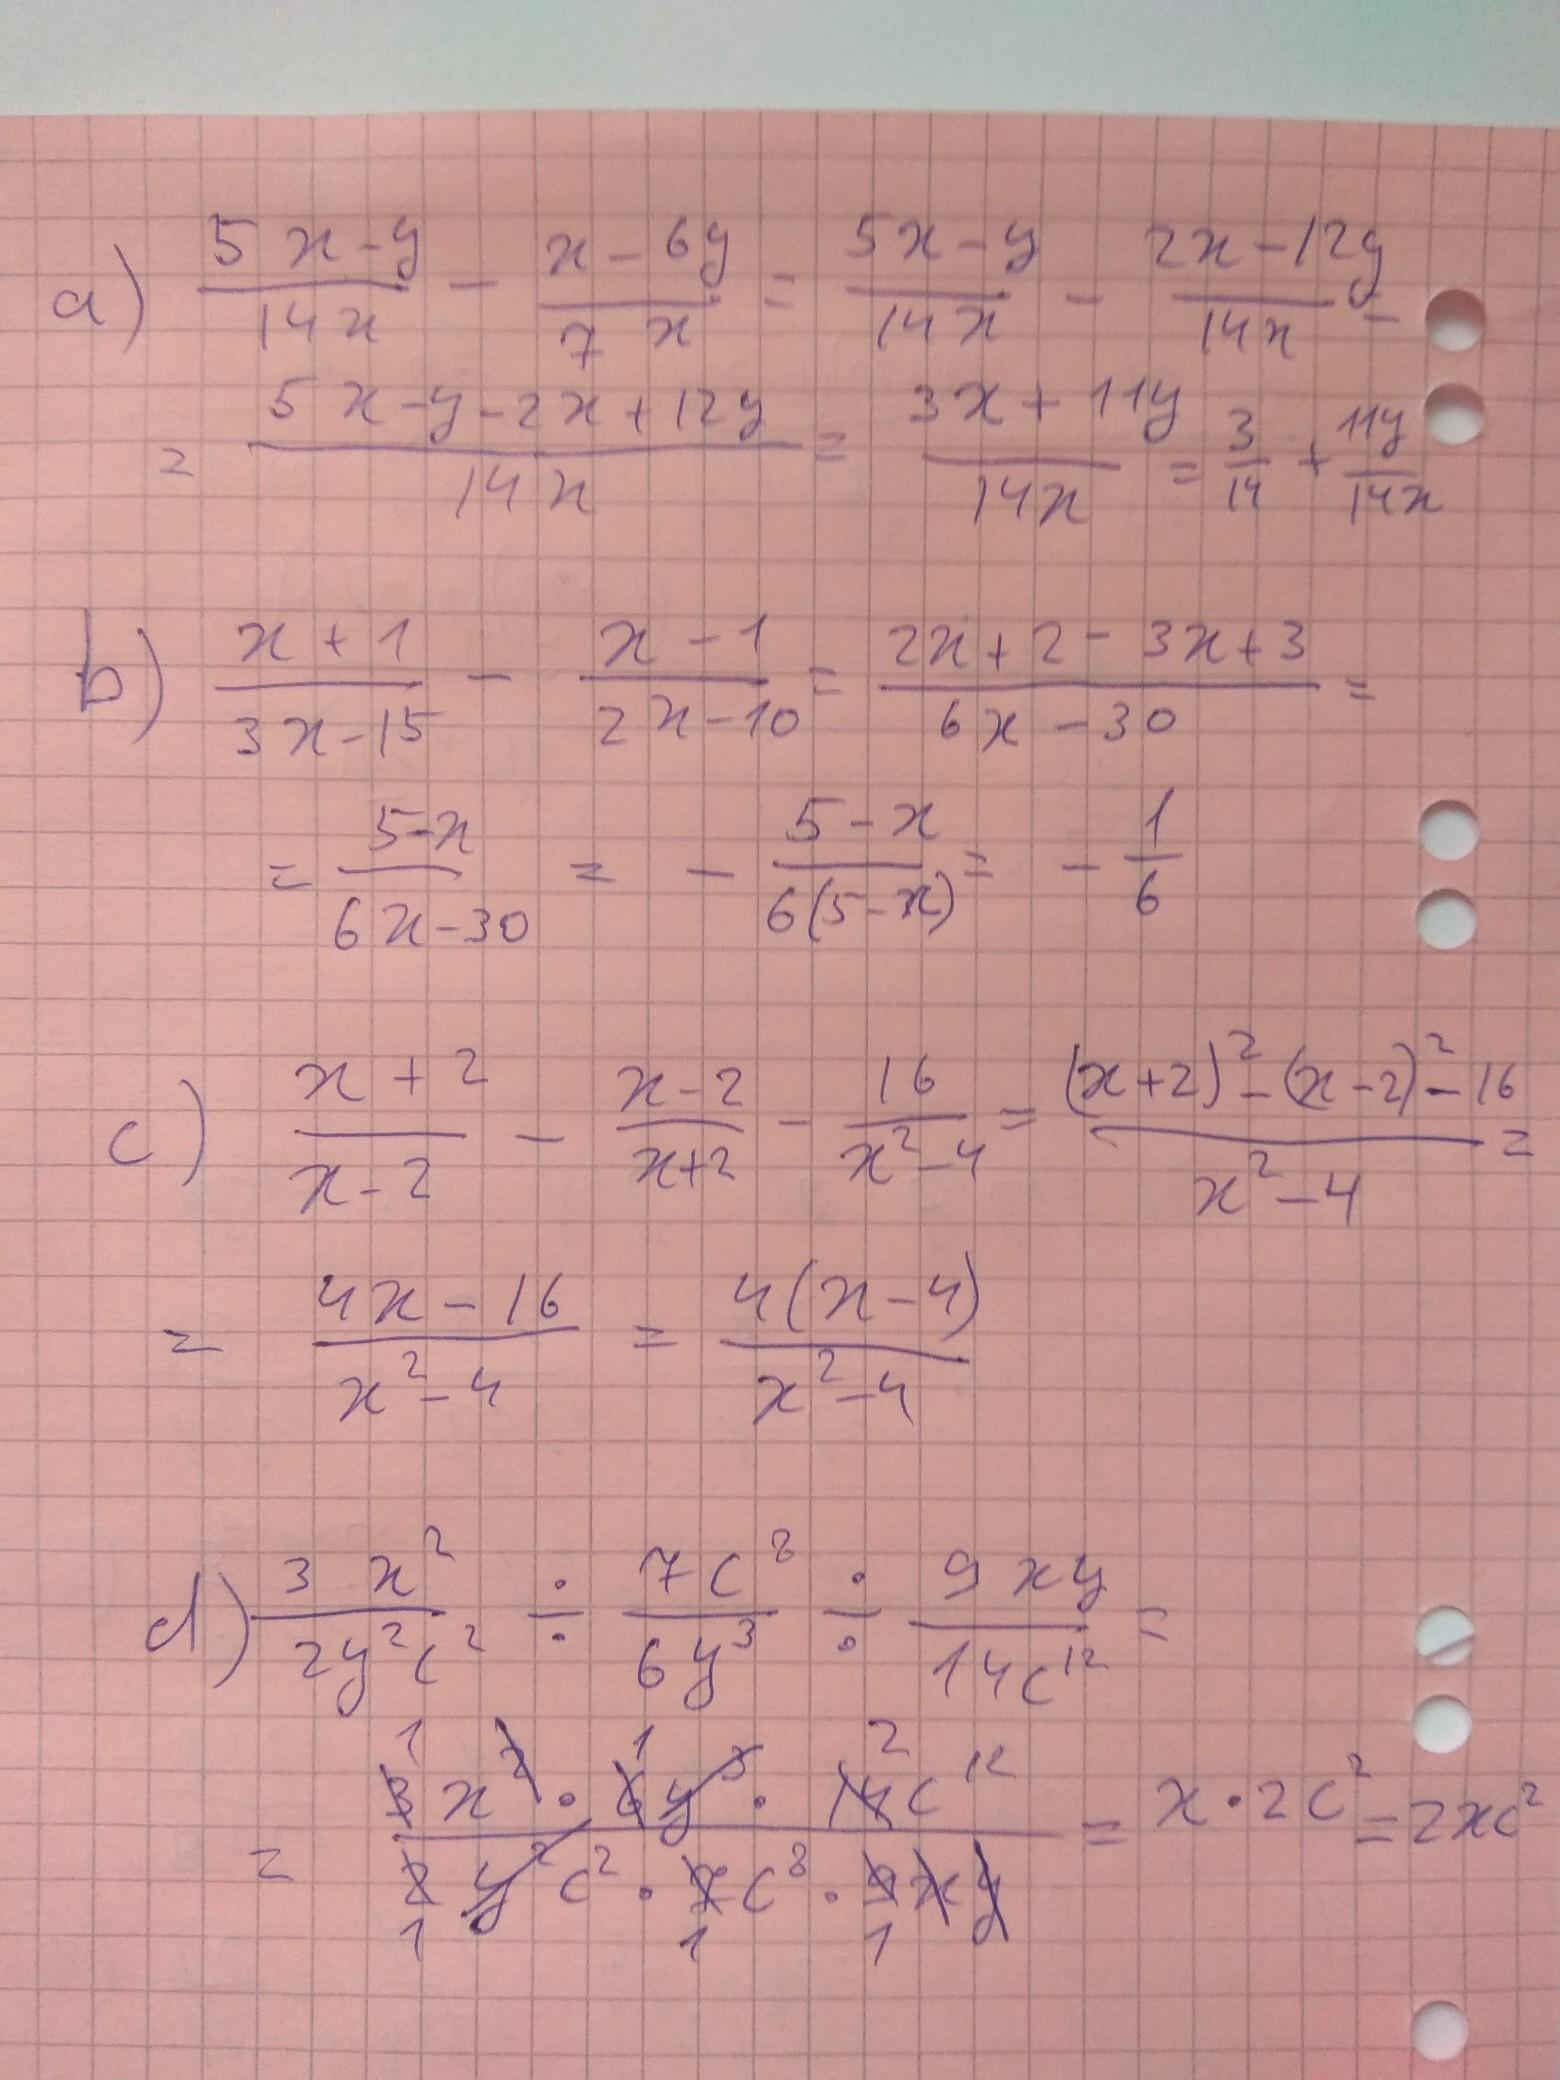 a) \frac{5x-y}{14x} - \frac{x-6y}{7x} = \frac{5x-y}{14x} - \frac{2x-12y}{14x} =
= \frac{5x-y-2x+12y}{14x} = \frac{3x+11y}{14x} = \frac{3}{14} + \frac{11y}{14x}
b) \frac{x+1}{3x-15} - \frac{x-1}{2x-10} = \frac{2x+2-3x+3}{6x-30} =
= \frac{5-x}{6x-30} = -\frac{5-x}{6(5-x)} = -\frac{1}{6}
c) \frac{x+2}{x-2} - \frac{x-2}{x+2} - \frac{16}{x^2-4} = \frac{(x+2)^2-(x-2)^2-16}{x^2-4} =
= \frac{4x-16}{x^2-4} = \frac{4(x-4)}{x^2-4}
d) \frac{3x^2}{2y^2c^2} ÷ \frac{7c^8}{6y^3} ÷ \frac{9xy}{14c^{12}} =
1 1 2
= \frac{3x^2 · 6y^3 · 14c^{12}}{2y^2c^2 · 7c^8 · 9xy} = x · 2c^2 = 2xc^2
1 1 1